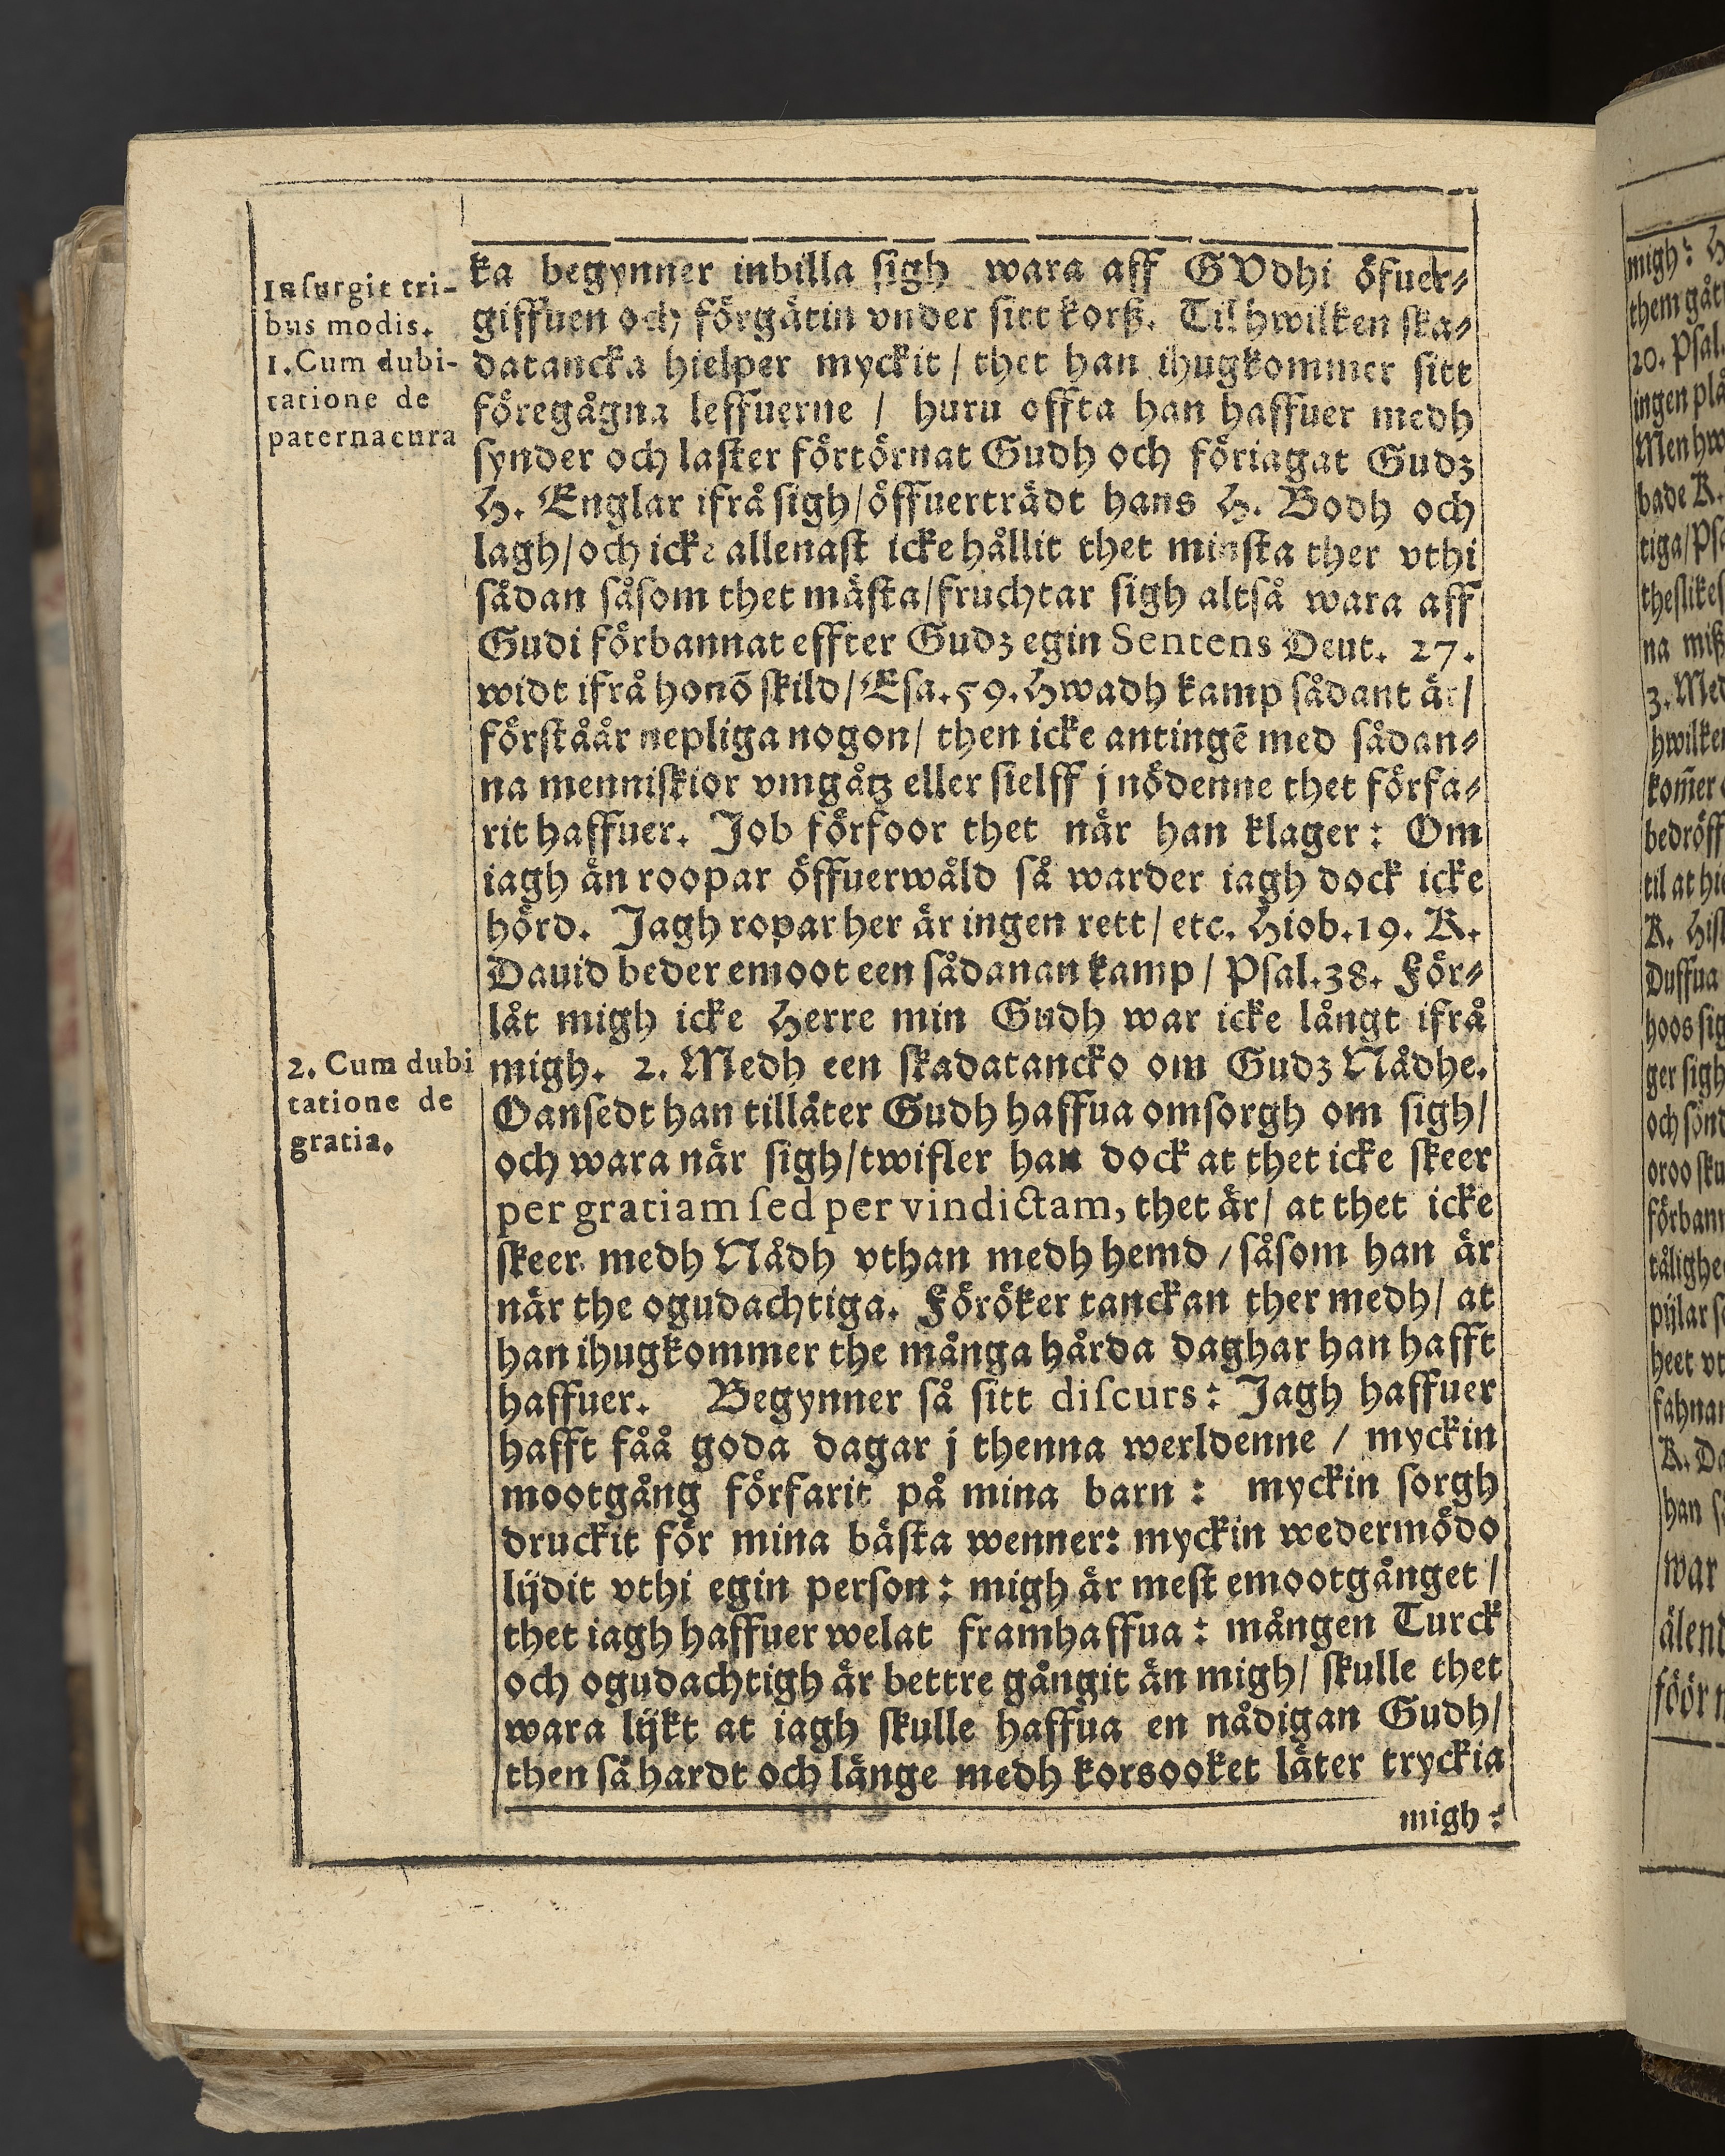 Insurgit tri-
bus modis.
1. Cum dubi-
tatione de
paterna cura
ka begynner inbilla sigh wara aff GVdhi öfuer-
giffuen och förgätin vnder sitt korß. Til hwilken ska-
datancka hielper myckit / thet han ihugkommer sitt
föregågna leffuerne / huru offta han haffuer medh
synder och laster förtörnat Gudh och föriagat Gudz
H. Englar ifrå sigh / öffuerträdt hans H. Bodh och
lagh / och icke allenast icke hållit thet minsta ther vthi
sådan såsom thet mästa / fruchtar sigh altså wara aff
Gudi förbannat effter Gudz egin Sentens Deut. 27.
widt ifrå honō skild / Esa. 59. Hwadh kamp sådant är /
förståår nepliga nogon / then icke antingē med sådan-
na menniskior vmgåtz eller sielff j nödenne thet förfa-
rit haffuer. Job förfoor thet när han klager: Om
iagh än roopar öffuerwåld så warder iagh dock icke
hörd. Jagh ropar her är ingen rett / etc. Hiob. 19. K.
Dauid beder emoot een sådanan kamp / Psal. 38. För-
låt migh icke Herre min Gudh war icke långt ifrå
2. Cum dubi
tatione de
gratia.
migh. 2. Medh een skadatancko om Gudz Nådhe.
Oansedt han tilläter Gudh haffua omsorgh om sigh /
och wara när sigh / twifler han dock at thet icke skeer
per gratiam sed per vindictam, thet är / at thet icke
skeer medh Nådh vthan medh hemd / såsom han är
när the ogudachtiga. Föröker tanckan ther medh / at
han ihugkommer the många hårda daghar han hafft
haffuer. Begynner så sitt discurs: Jagh haffuer
hafft fåå goda dagar j thenna werldenne / myckin
mootgång förfarit på mina barn: myckin sorgh
druckit för mina bästa wenner: myckin wedermödo
lijdit vthi egin person: migh är mest emootgånget /
thet iagh haffuer welat framhaffua: mången Turck
och ogudachtigh är bettre gångit än migh / skulle thet
wara lijkt at iagh skulle haffua en nådigan Gudh /
then så hardt och länge medh korsooket läter tryckia
migh: